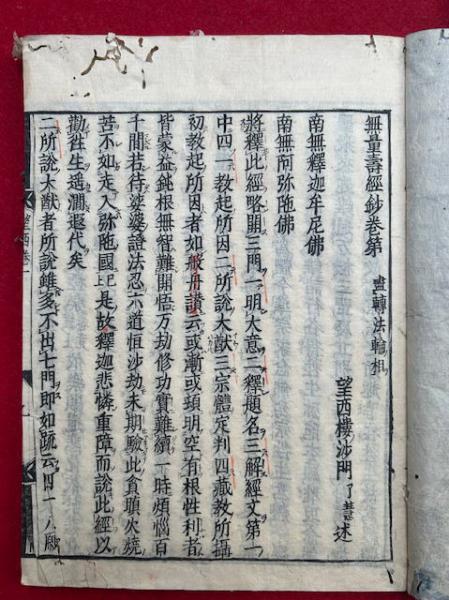 無量壽經鈔卷第一 盡轉法輪相
望西樓沙門了慧述
南無釋迦牟尼佛
南無阿弥陀佛
將釋此經略開三門一明大意二釋題名三解經文第一
中四一教起所因二所說大猷三宗體定判四藏教所攝
初教起所因者如般舟讚云或漸或頓明空有根性利者
皆蒙益鈍根無智難開悟万劫修功實難續一時煩惱百
千間若待娑婆證法忍六道恒沙劫未期驗此貪瞋火燒
苦不如走入弥陀國已上是故釋迦悲憐重障而說此經以
勸往生遥澗遐代矣
二所說大猷者所說雖多不出七門即如疏云
望西卷一